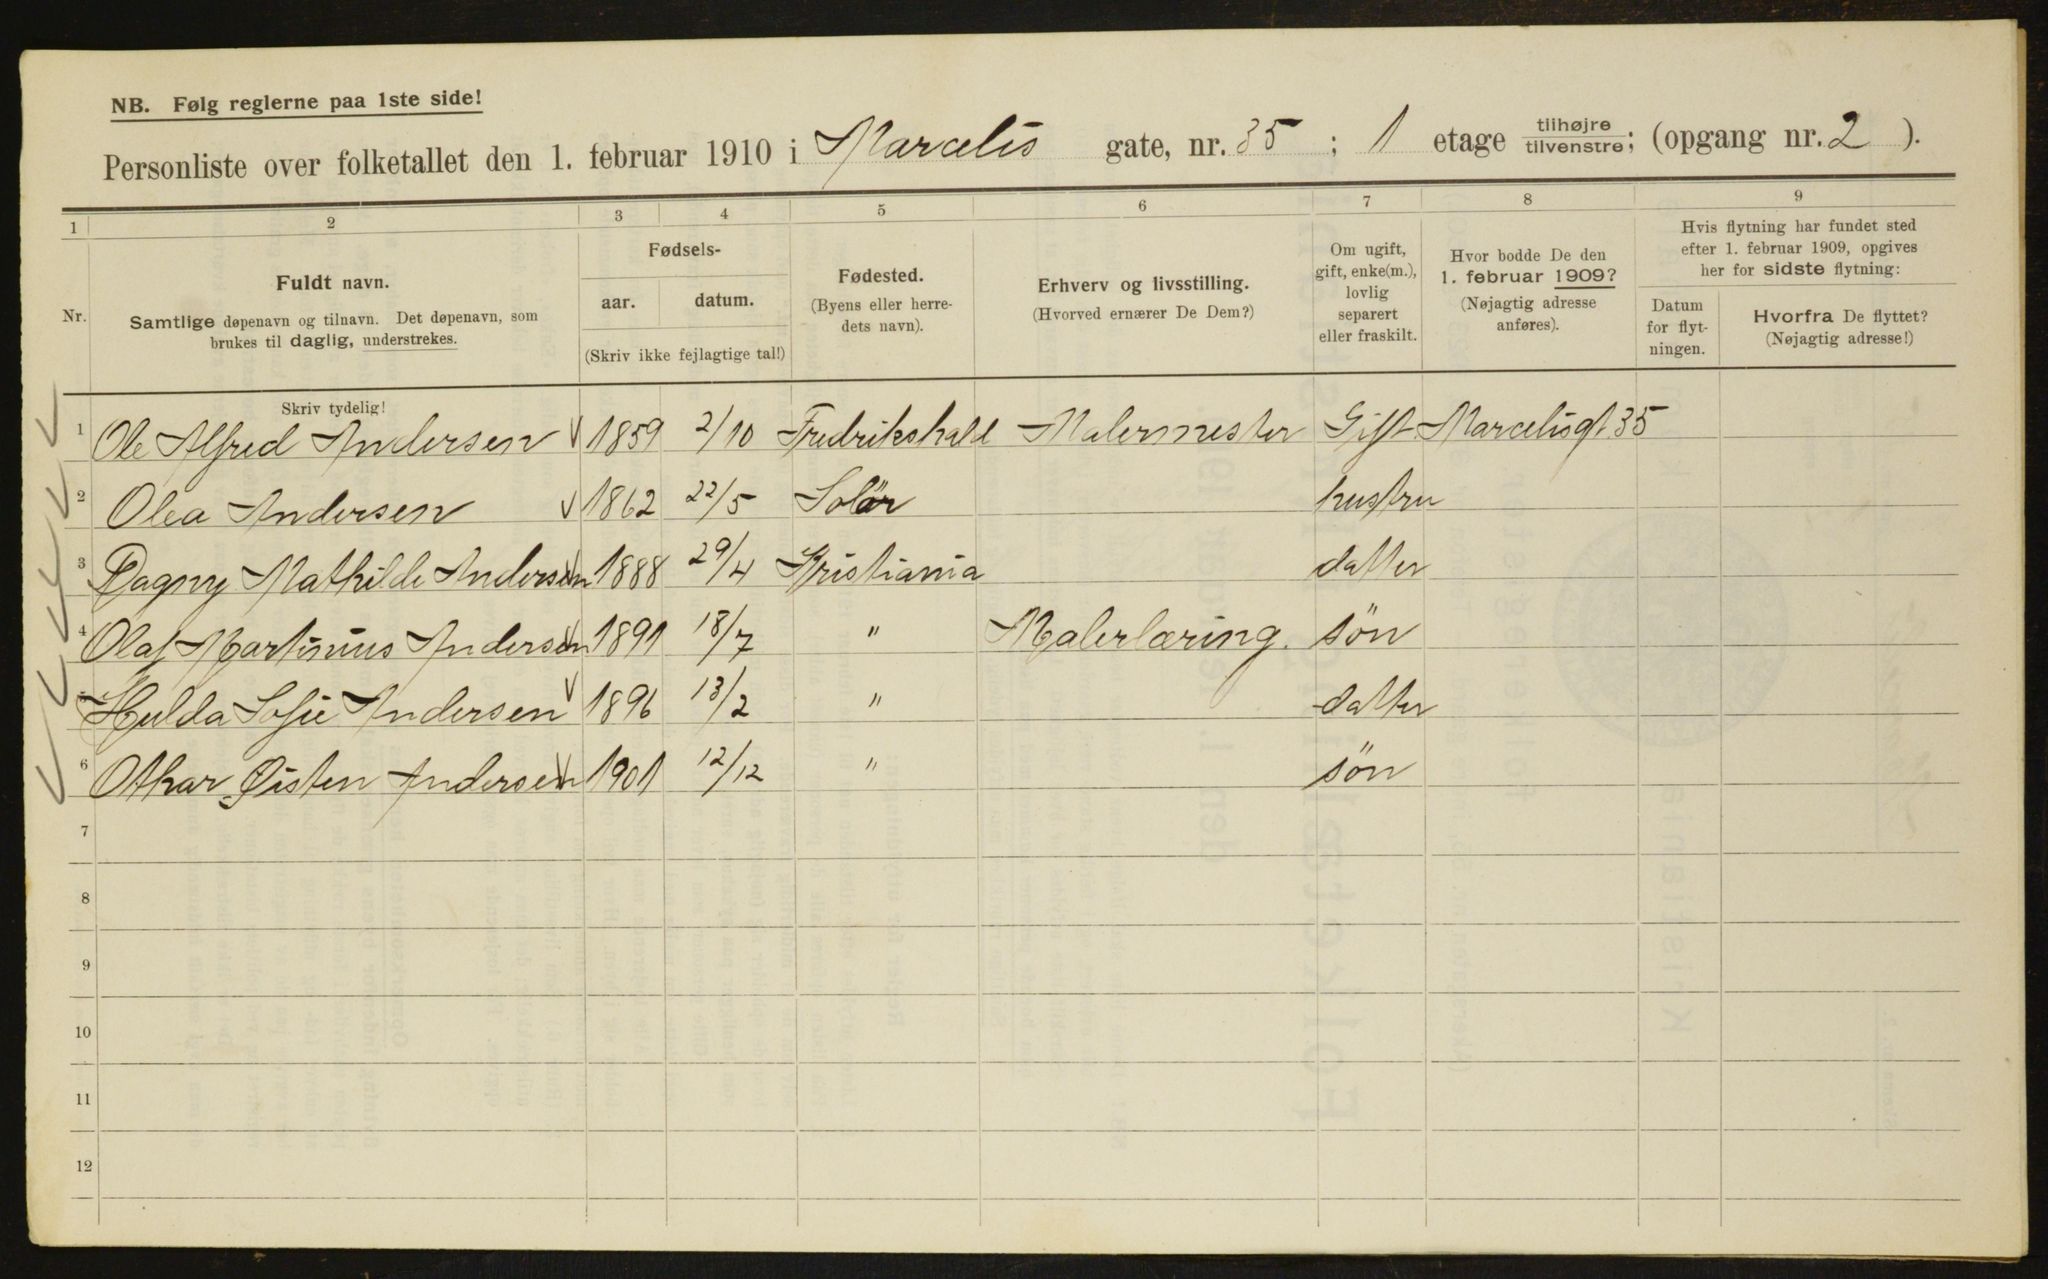 NB. Følg reglerne paa 1ste side!
Personliste over folketallet den 1. februar 1910 i Marcelis gate, nr. 35 ; 1 etage tilhøjre tilvenstre; (opgang nr. 2 ).
1 2 3 4 5 6 7 8 9
Nr.
Fuldt navn.
Samtlige døpenavn og tilnavn. Det døpenavn, som
brukes til daglig, understrekes.
Fødsels-
aar. datum.
(Skriv ikke fejlagtige tal!)
Fødested.
(Byens eller herre-
dets navn).
Erhverv og livsstilling.
(Hvorved ernærer De Dem?)
Om ugift,
gift, enke(m.),
lovlig
separert
eller fraskilt.
Hvor bodde De den
1. februar 1909?
(Nøjagtig adresse
anføres).
Hvis flytning har fundet sted
efter 1. februar 1909, opgives
her for sidste flytning:
Datum
for flyt-
ningen.
Hvorfra De flyttet?
(Nøjagtig adresse!)
Skriv tydelig!
1 Ole Alfred Andersen 1859 2/10 Fredrikshald Malermester Gift Marcelisgt 35
2 Olea Andersen 1862 22/5 Solør hustru
3 Dagny Mathilde Andersen 1888 29/4 Kristiania datter
4 Olaf Martinius Andersen 1891 18/7 " Malerlæring. søn
5 Hulda Sofie Andersen 1896 13/2 " datter
6 Othar Øisten Andersen 1901 12/12 " søn
7
8
9
10
11
12